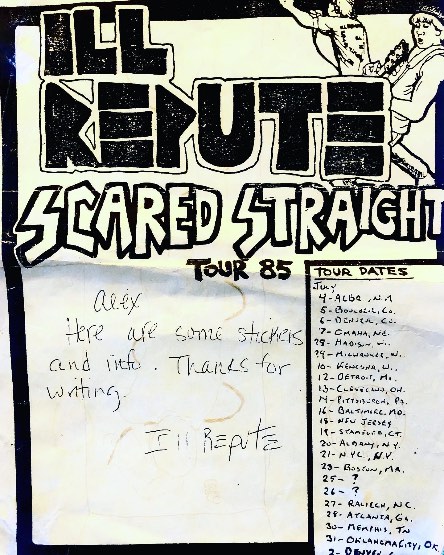 ILL
REPUTE
SCARED STRAIGHT
TOUR 85
Alex
Here are some stickers
and info. Thanks for
writing.
Ill Repute
TOUR DATES
July
4- ALBQ, N.M
5- BOULDER, CO.
6- DENVER, CO.
7- OMAHA, NE.
28- MADISON, WI.
29- MILWAUKEE, W.
10- KENOSHA, WI.
12- DETROIT, MI.
13- CLEVELAND, OH.
14- PITTSBURGH, PA.
16- BALTIMORE, MD.
18- NEW JERSEY
19- STAMFORD, CT.
20- ALBANY, N.Y.
21- N.Y.C., N.Y.
23- BOSTON, MA.
25- ?
26- ?
27- RALEIGH, N.C.
28- ATLANTA, GA.
30- MEMPHIS, TN
31- OKLAHOMA CITY, OK
2- DENVER